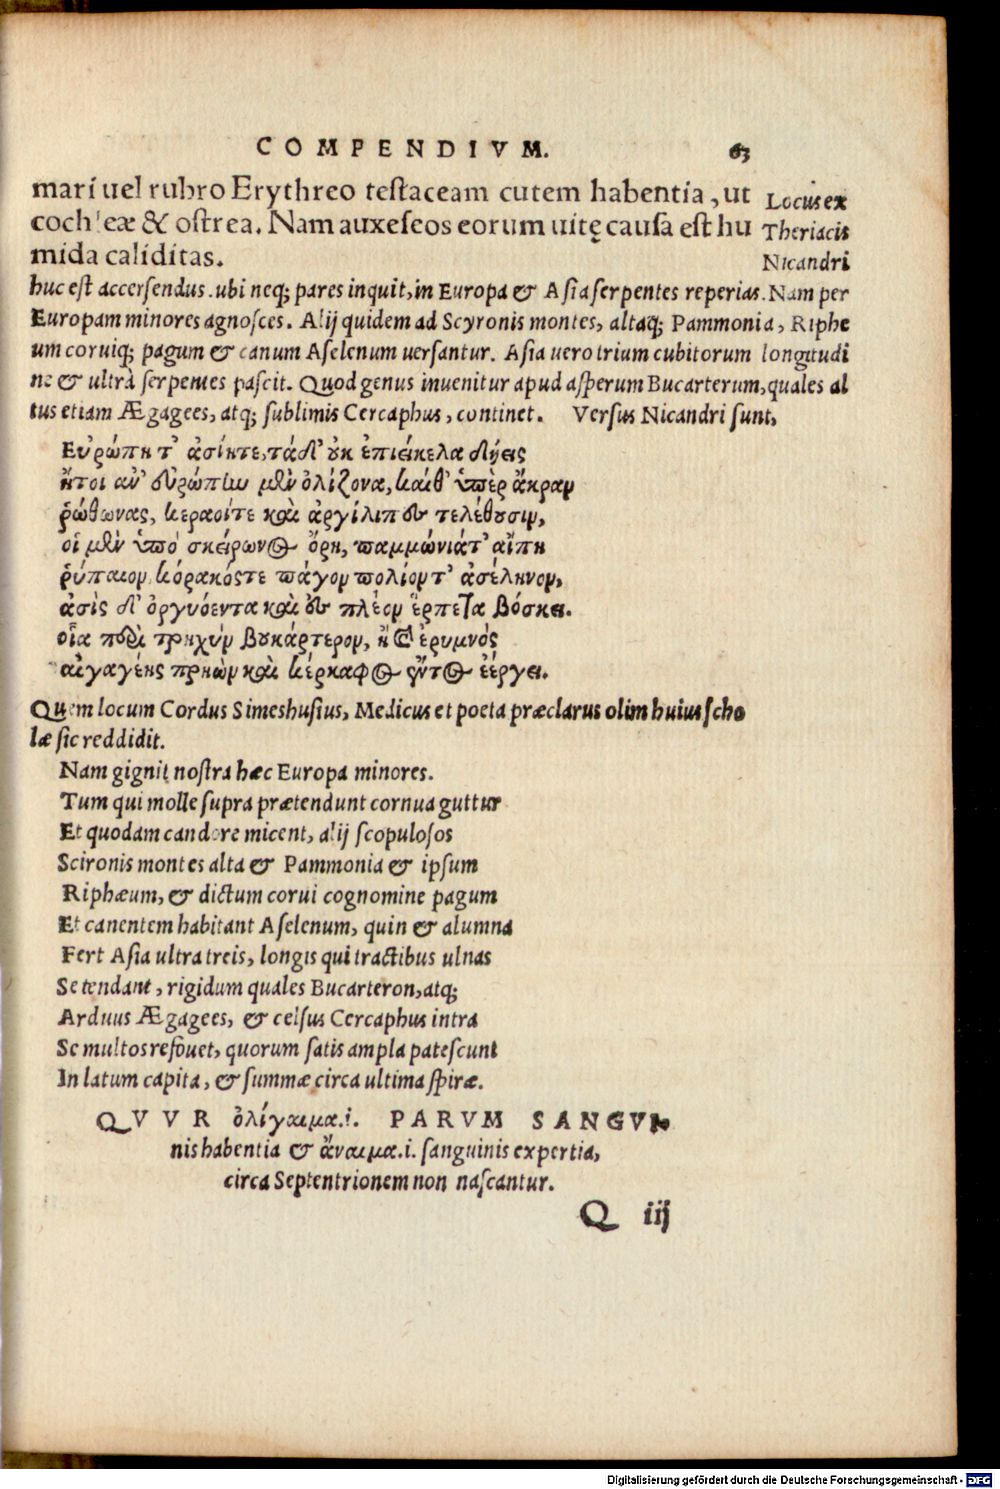 COMPENDIVM. 63
mari uel rubro Erythreo testaceam cutem habentia, ut
cochleæ & ostrea. Nam auxeseos eorum uitę causa est hu
mida caliditas.
Locus ex
Theriacis
Nicandri
huc est accersendus. ubi neq; pares inquit, in Europa & Asia serpentes reperias. Nam per
Europam minores agnosces. Alij quidem ad Scyronis montes, altaq; Pammonia, Riphe
um coruiq; pagum & canum Aselenum uersantur. Asia uero trium cubitorum longitudi
ne & ultrà serpentes pascit. Quod genus inuenitur apud asperum Bucarterum, quales al
tus etiam Ægagees, atq; sublimis Cercaphus, continet. Versus Nicandri sunt,
Εὐρώπη τ' ἀσίητε, τάδ' ȣκ ἐπιείκελα δήεις
ἤτοι ἀν' ἐυρώπην μὲν ὀλίζονα, καιθ' ὑπὲρ ἄκραν
ῥώθωνας, κεραοίτε καὶ ἀργίλιπες τελέθȣσιν,
οἱ μὲν ὑπὸ σκείρωνος ὄρη, παμμώνιάτ' αἴπη
ῥύπαιον κόρακόςτε πάγον πολίοντ' ἀσέληνον,
ἀσὶς δ' ὀργυόεντα καὶ ἐς πλέον ἑρπετα βόσκει.
οἷα περὶ τρηχὺν βȣκάρτερον, ἢ ἐρυμνὸς
αἰγαγέης πρηὼν καὶ κέρκαφος ἐντὸς ἐέργει.
Quem locum Cordus Simeshusius, Medicus et poeta præclarus olim huius scho
læ sic reddidit.
Nam gignit nostra hæc Europa minores.
Tum qui molle supra prætendunt cornua guttur
Et quodam candore micent, alij scopulosos
Scironis montes alta & Pammonia & ipsum
Riphæum, & dictum corui cognomine pagum
Et canentem habitant Aselenum, quin & alumna
Fert Asia ultra treis, longis qui tractibus ulnas
Se tendant, rigidum quales Bucarteron, atq;
Arduus Ægagees, & celsus Cercaphus intra
Se multos refouet, quorum satis ampla patescunt
In latum capita, & summæ circa ultima spiræ.
QVVR ὀλίγαιμα.i. PARVM SANGVI-
nis habentia & ἄναιμα.i. sanguinis expertia,
circa Septentrionem non nascantur.
Q iij
Digitalisierung gefördert durch die Deutsche Forschungsgemeinschaft - DFG